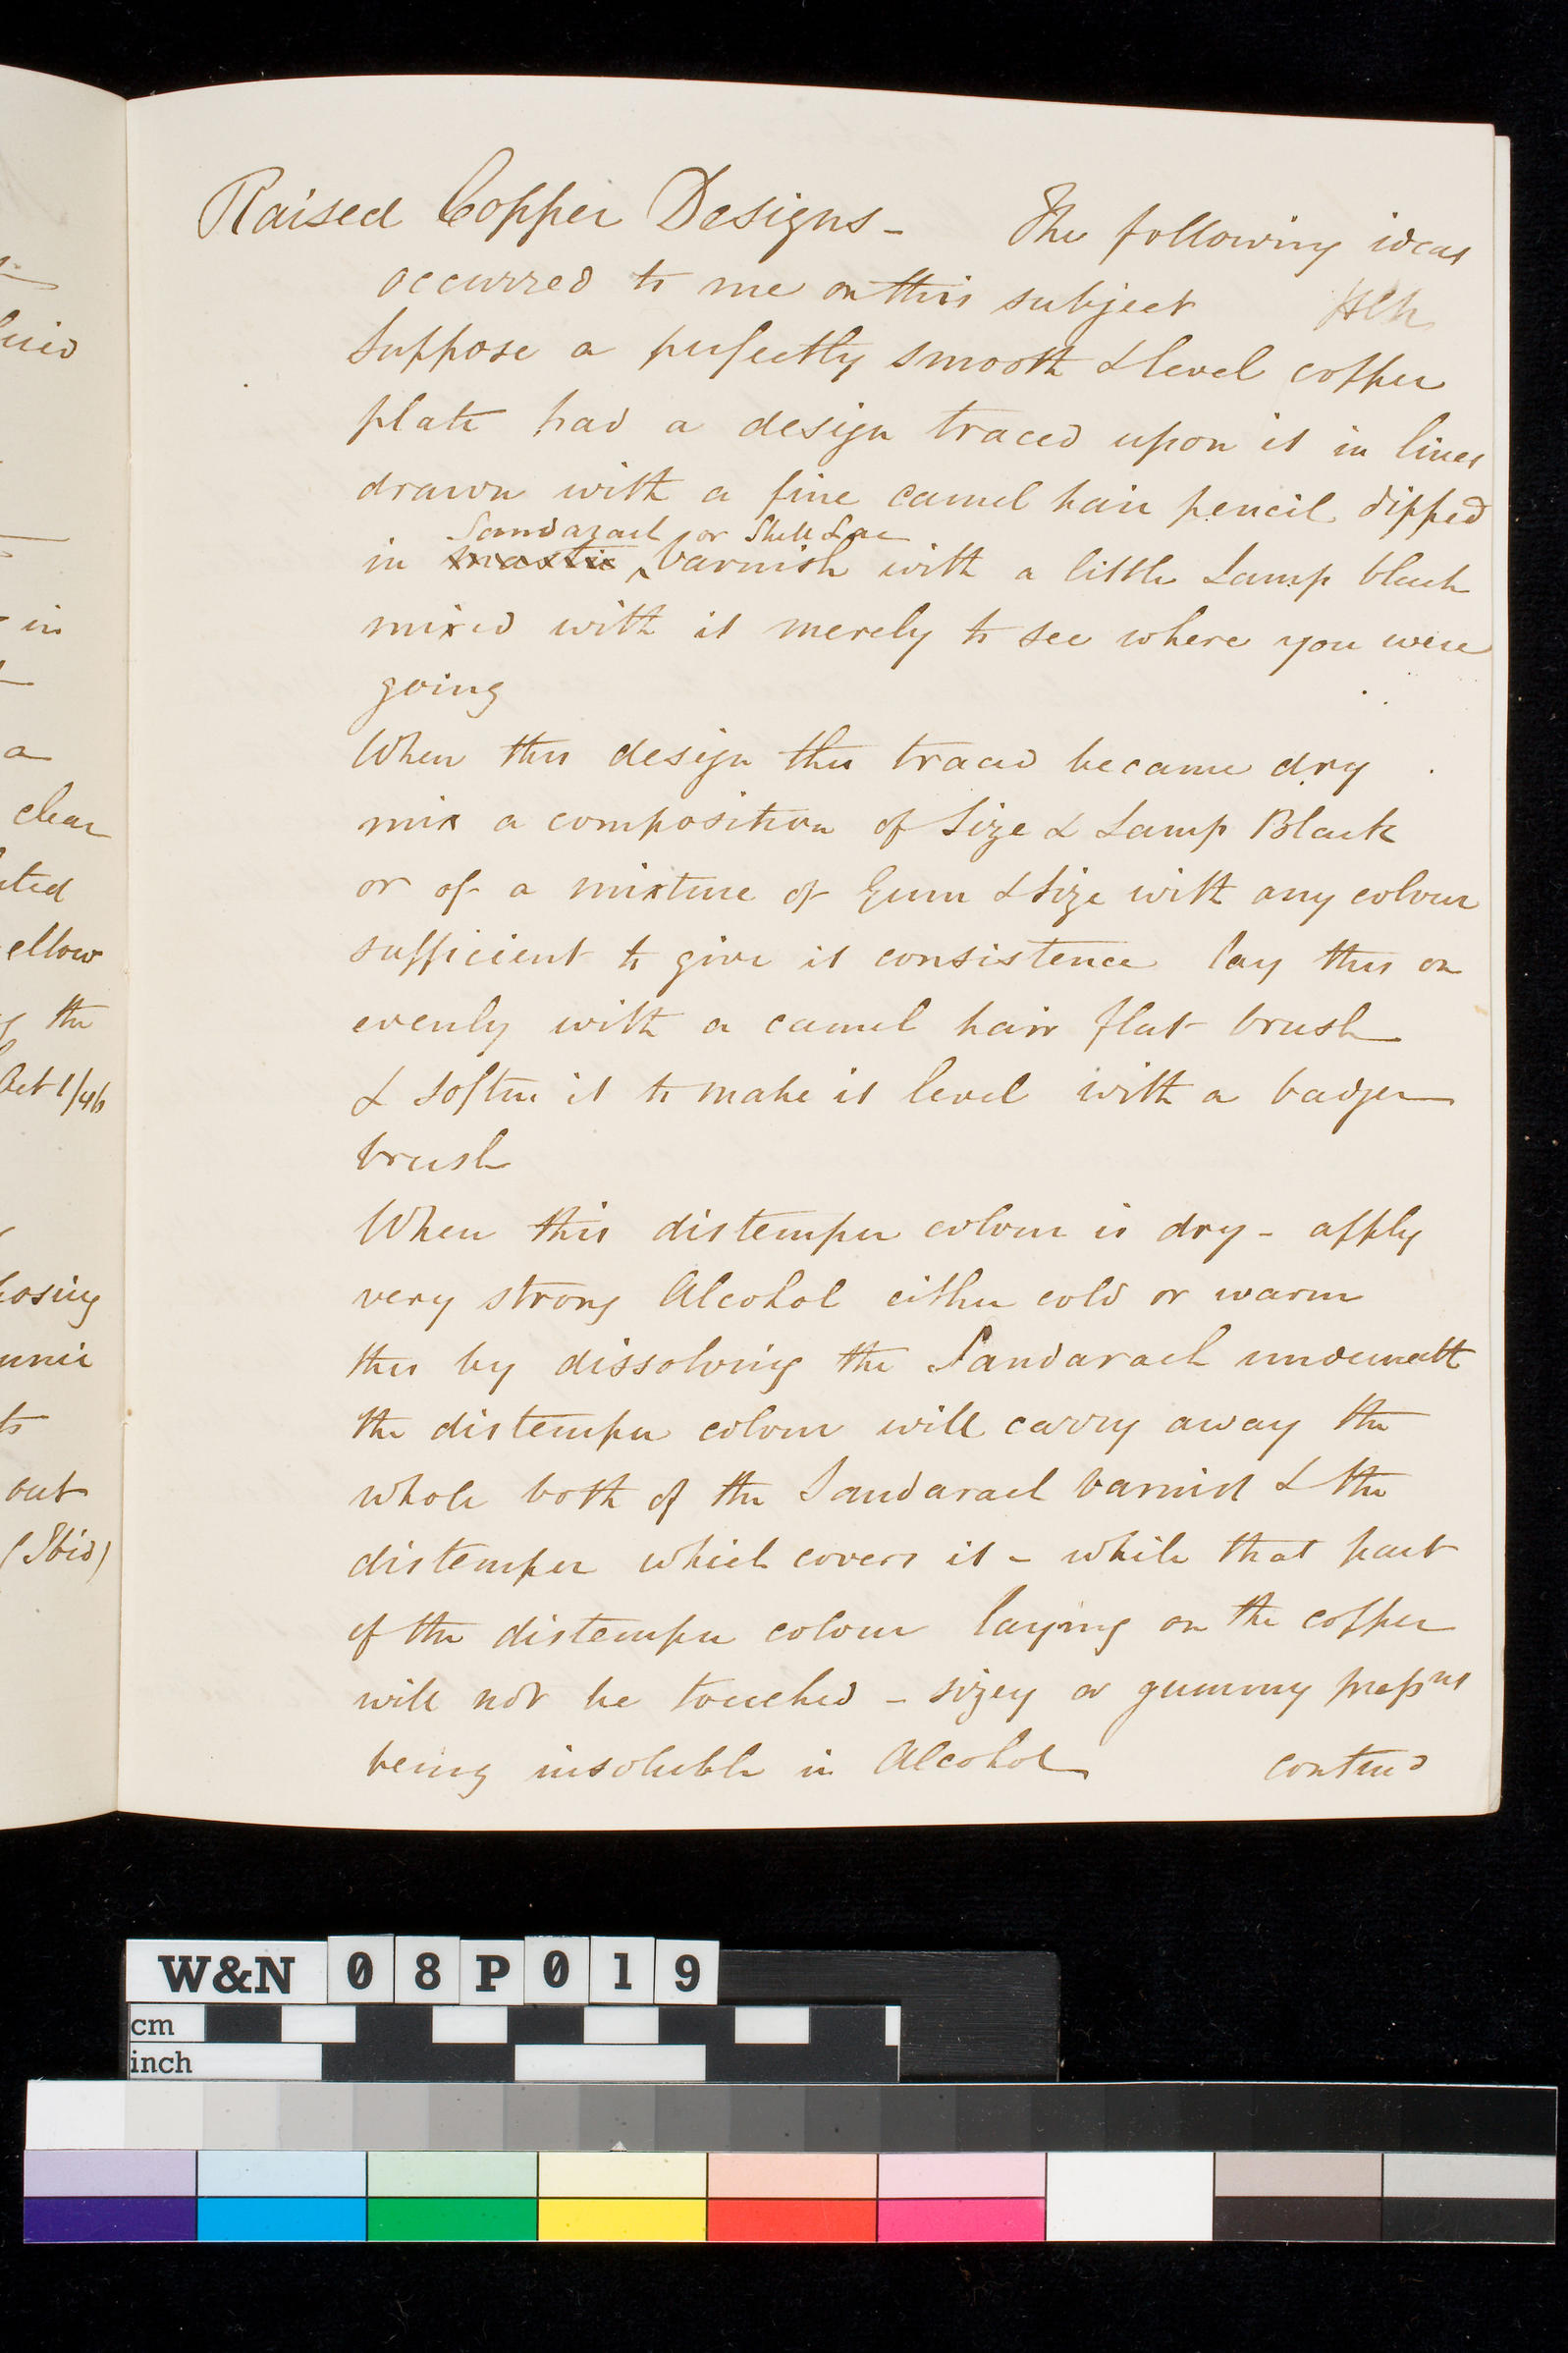 Raised Copper Designs - The following ideas
occurred to me on this subject HCN
Suppose a perfectly smooth & level copper
plate had a design traced upon it in lines
drawn with a fine camel hair pencil dipped
Sandarach or Shell Lac
in mastic ^ varnish with a little Lamp black
mixed with it merely to see where you were
going
When this design thus traced became dry
mix a composition of Size & Lamp Black
or of a mixture of Gum & Size with any colour
sufficient to give it consistence lay this on
evenly with a camel hair flat brush
& soften it to make it level with a badger
brush
When this distemper colour is dry - apply
very strong Alcohol either cold or warm
this by dissolving the Sandarach underneath
the distemper colour will carry away the
whole both of the Sandarach varnish & the
distemper which covers it - while that part
of the distemper colour laying on the copper
will not be touched - sizey or gummy prepns
being insoluble in Alcohol contind
in
a
clear
ellow
the
Oct 1/46
out
(Ibid)
W&N 08P019
cm
inch